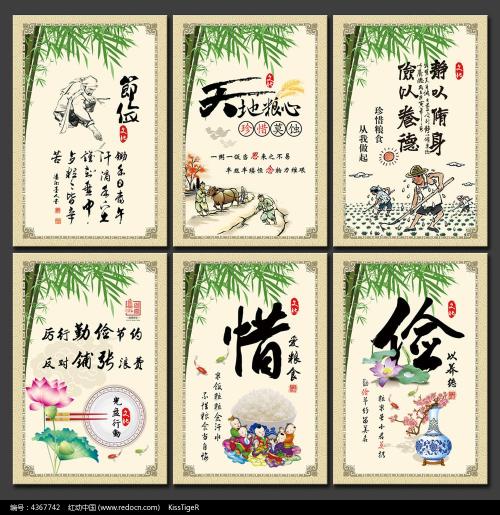 節儉
文化
锄禾日當午
汗滴禾下土
谁知盘中
粒粒皆辛
苦
天地粮心
文化
珍惜莫蚀
一粥一饭当思来之不易
半丝半缕恒念物力维艰
静以脩身
儉以養德
文化
珍惜粮食
从我做起
厉行勤俭节约
反对铺张浪费
光盘行動
文化
惜
文化
爱粮食
俭
文化
以养德
编号：4367742 红动中国 (www.redocn.com) KissTigeR